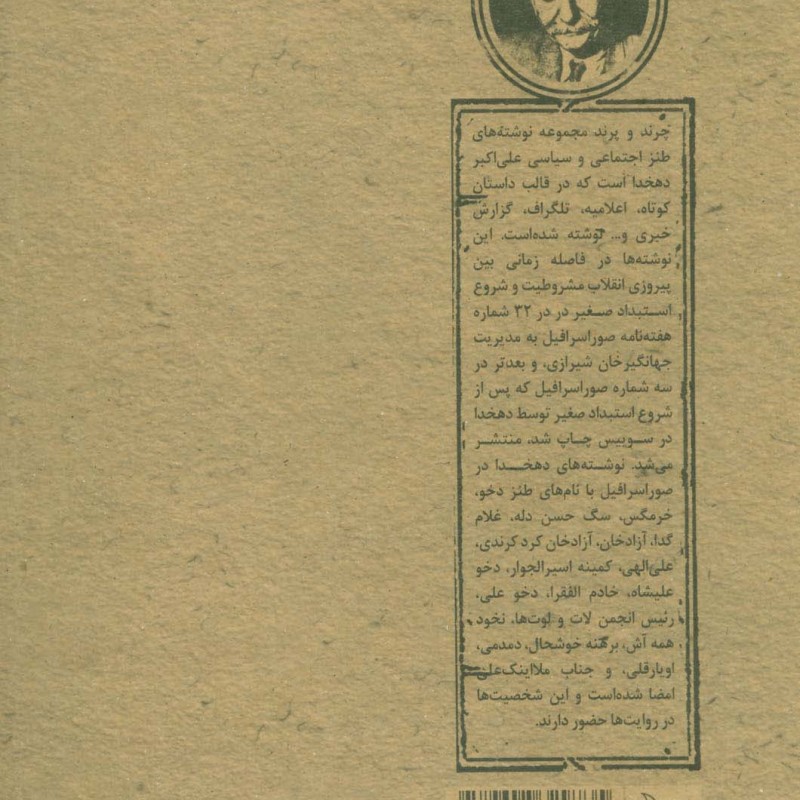 چرند و پرند مجموعه نوشته‌های
طنز اجتماعی و سیاسی علی‌اکبر
دهخدا است که در قالب داستان
کوتاه، اعلامیه، تلگراف، گزارش
خبری و... نوشته شده‌است. این
نوشته‌ها در فاصله زمانی بین
پیروزی انقلاب مشروطیت و شروع
استبداد صغیر در در ۳۲ شماره
هفته‌نامه صوراسرافیل به مدیریت
جهانگیرخان شیرازی، و بعدتر در
سه شماره صوراسرافیل که پس از
شروع استبداد صغیر توسط دهخدا
در سوییس چاپ شد، منتشر
می‌شد. نوشته‌های دهخدا در
صوراسرافیل با نام‌های طنز دخو،
خرمگس، سگ حسن دله، غلام
گدا، آزادخان، آزادخان کرد کرندی،
علی‌الهی، کمینه اسیرالجوار، دخو
علیشاه، خادم الفقرا، دخو علی،
رئیس انجمن لات و لوت‌ها، نخود
همه آش، برهنه خوشحال، دمدمی،
اویارقلی، و جناب ملااینک‌علی
امضا شده‌است و این شخصیت‌ها
در روایت‌ها حضور دارند.